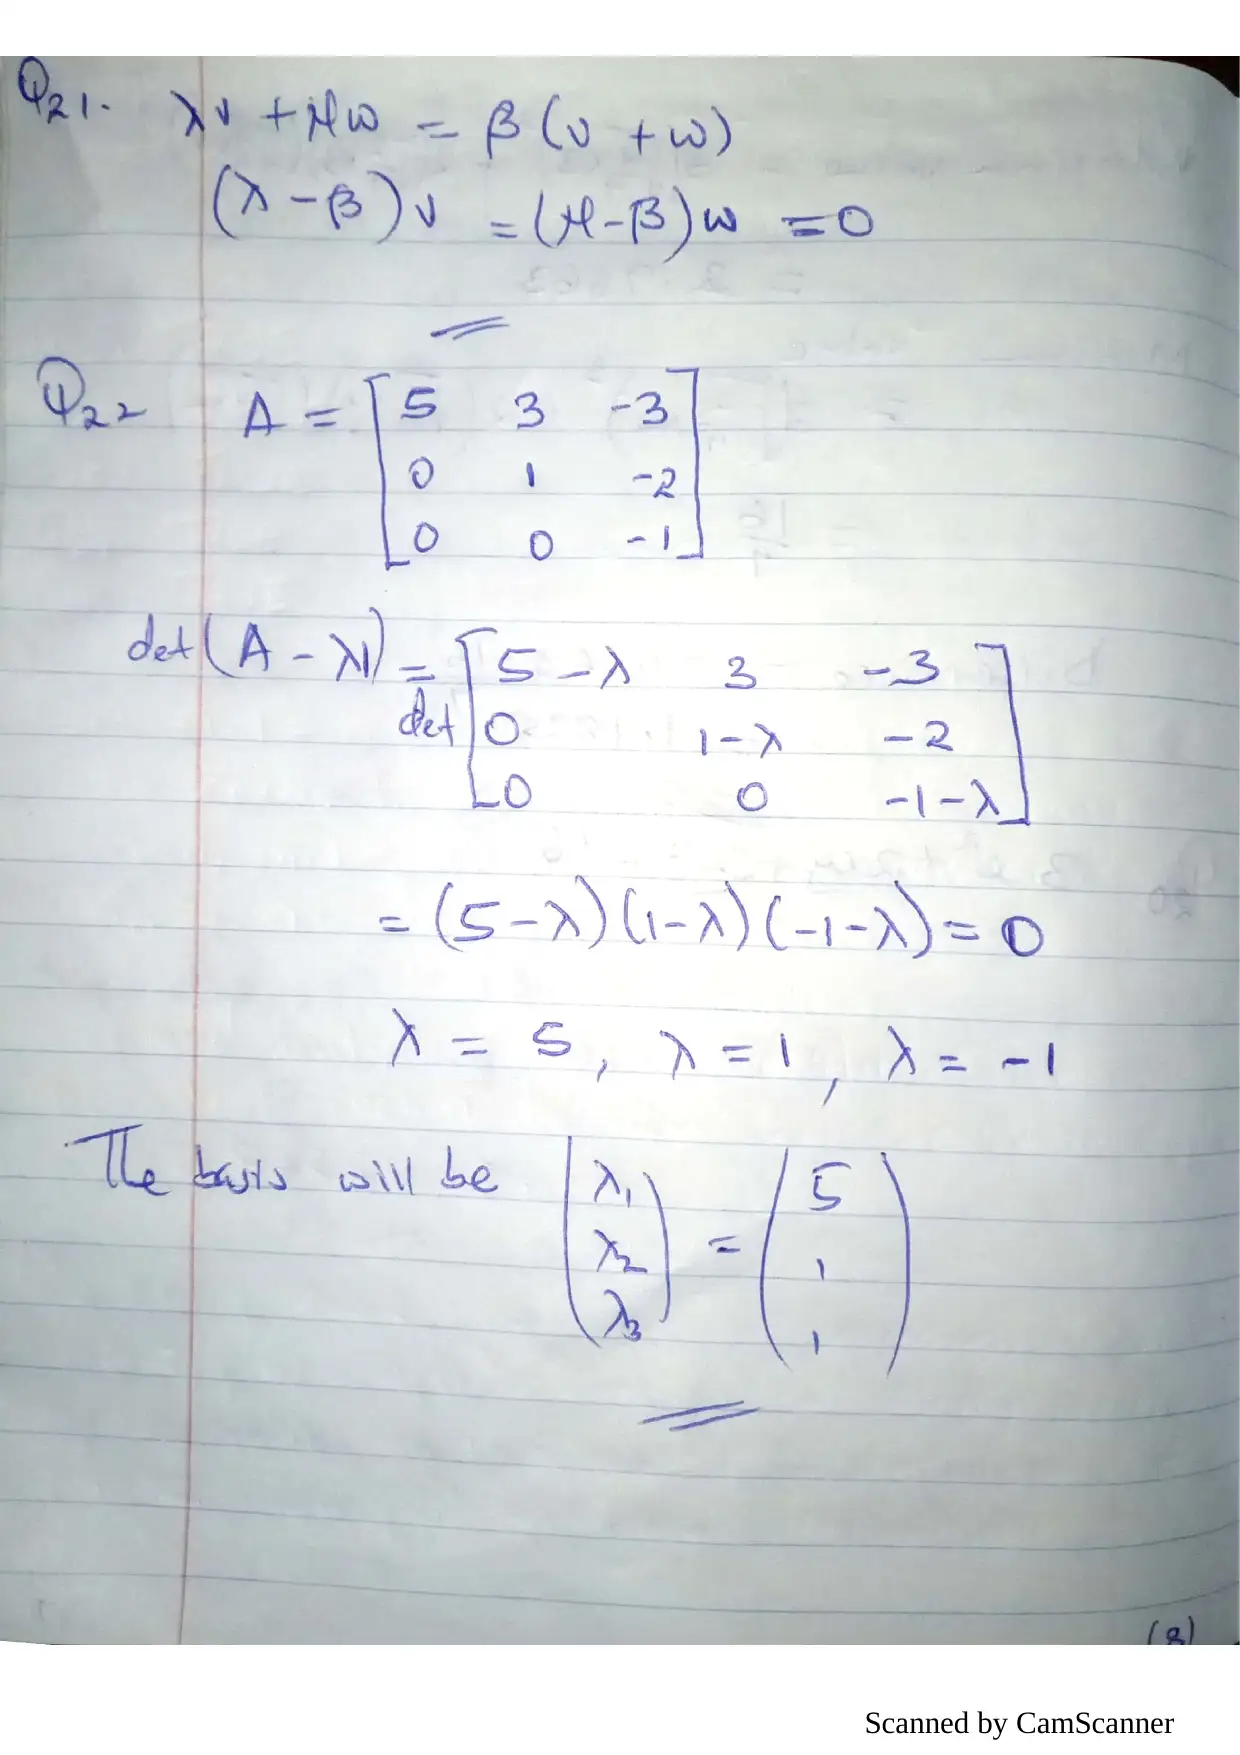 Q21. λv + μw = β(v + w)
(λ - β)v = (μ - β)w = 0
Q22 A = [5 3 -3
0 1 -2
0 0 -1]
det(A - λI) = det [5-λ 3 -3
0 1-λ -2
0 0 -1-λ]
= (5-λ)(1-λ)(-1-λ) = 0
λ = 5, λ = 1, λ = -1
The basis will be (λ1 λ2 λ3) = (5 1 1)
(8)
Scanned by CamScanner